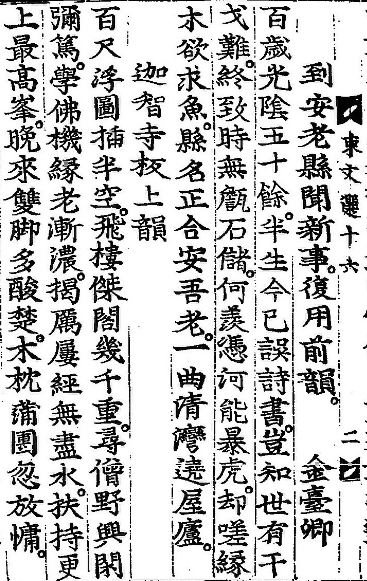 東文選十六 二
到安老縣聞新事。復用前韻。 金臺卿
百歲光陰五十餘。半生今已誤詩書。豈知世有干
戈難。終致時無甔石儲。何羨憑河能暴虎。却嗟緣
木欲求魚。縣名正合安吾老。一曲清灣遶屋廬。
迦智寺板上韻
百尺浮圖揷半空。飛樓傑閣幾千重。尋僧野興閑
彌篤。學佛機緣老漸濃。揭厲屢經無盡水。扶持更
上最高峯。晚來雙脚多酸楚。木枕蒲團忽放慵。